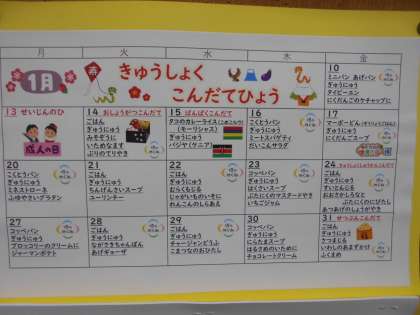 月 火 水 木 金
1月
きゅうしょく
こんだてひょう
10
ミニパン あげパン
ぎゅうにゅう
タイピーエン
にくだんごのケチャップに
13 せいじんのひ
成人の日
14 おしょうがつこんだて
ごはん
ぎゅうにゅう
みそぞうに
いためなます
ぶりのてりやき
15 ばんぱくこんだて
タコのカレーライス
(モーリシャス)
ぎゅうにゅう
バジヤ(ケニア)
16
こくとうパン
ぎゅうにゅう
ミートスパゲティ
だいこんサラダ
17
マーボーどん
ぎゅうにゅう
にくだんごスープ
20
こくとうパン
ぎゅうにゅう
ミネストローネ
ふゆやさいグラタン
21
ごはん
ぎゅうにゅう
ちんげんさいスープ
ユーリンチー
22
ごはん
ぎゅうにゅう
むらくもじる
じゃがいものいそに
れんこんのしらあえ
23
コッペパン
ぎゅうにゅう
はくさいスープ
ぶたにくのマスタードやき
いちごジャム
24
ごはん
ぎゅうにゅう
すいとんじる
おおさかしろなと
ぶたにくのにびたし
あつあげのしょうがやき
27
コッペパン
ぎゅうにゅう
ブロッコリーのクリームに
ジャーマンポテト
28
ごはん
ぎゅうにゅう
ながさきちゃんぽん
あげギョーザ
29
ごはん
ぎゅうにゅう
チャージャンどうふ
こまつなのおひたし
30
コッペパン
ぎゅうにゅう
にらたまスープ
はるさめのいために
チョコレートクリーム
31 せつぶんこんだて
ごはん
ぎゅうにゅう
さつまじる
いわしのあまずかけ
ふくまめ